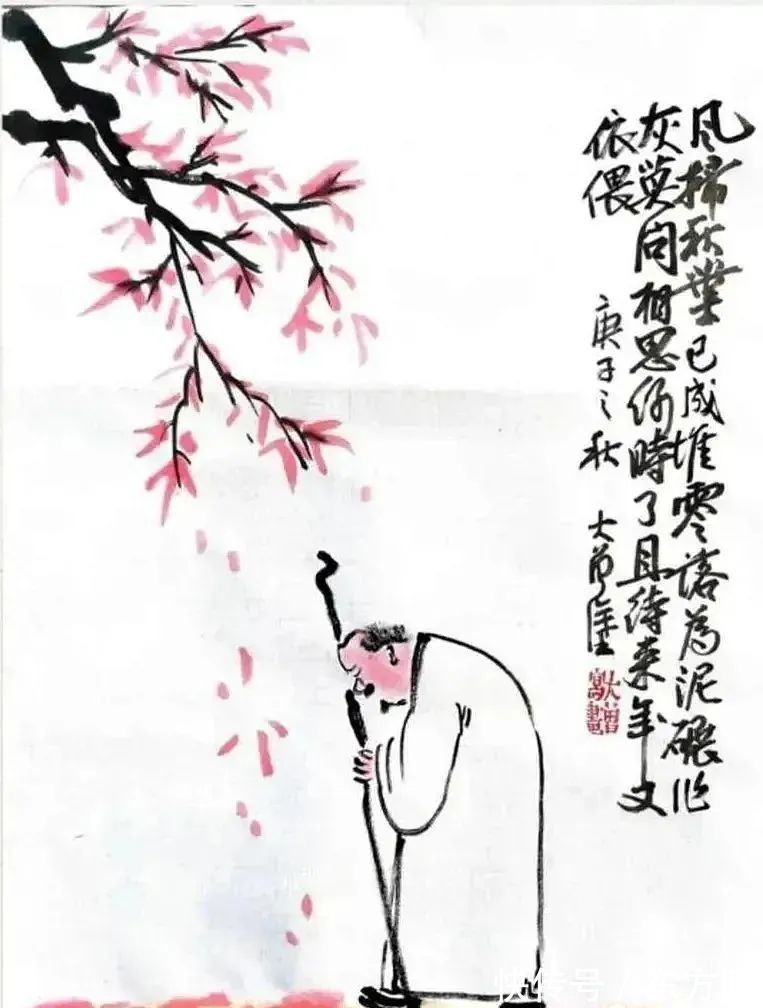 风掃秋葉已成堆零落為泥碾作
灰莫问相思何時了且待来年又
依偎
庚子之秋 大
快传号 /